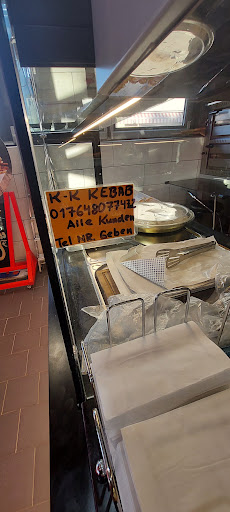 K-K KEBAB
017648077472
Alle Kunden
Tel NR. Geben